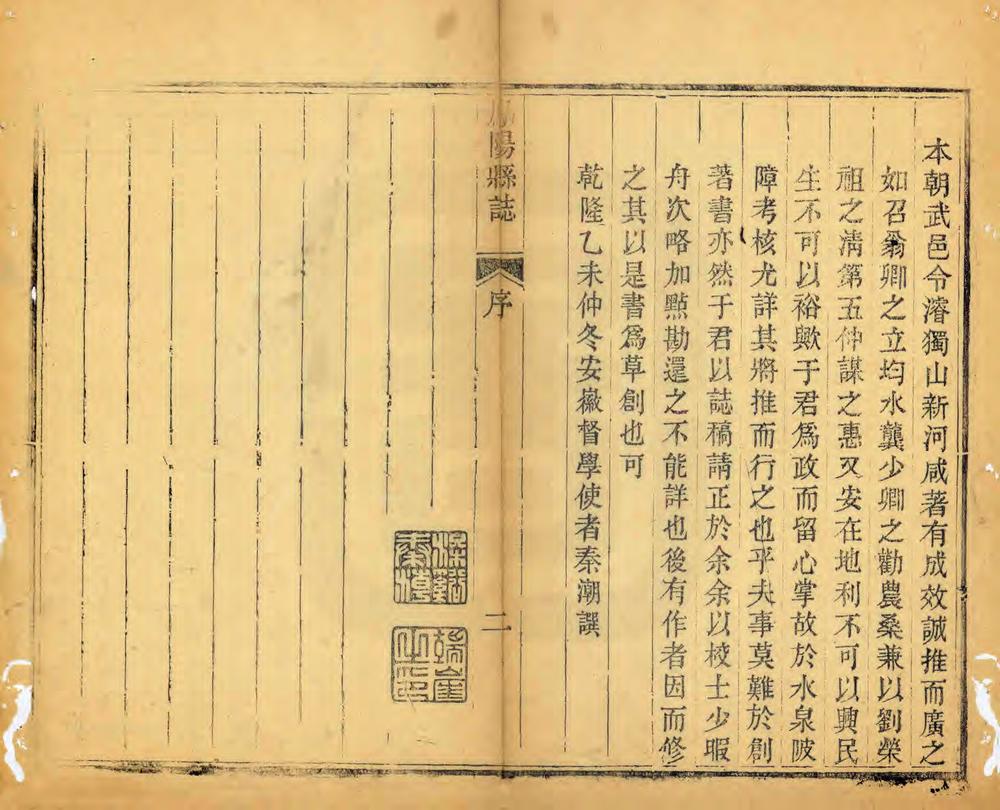 本朝武邑令濬獨山新河咸著有成效誠推而廣之
如召翁卿之立均水龔少卿之勸農桑兼以劉榮
祖之淸第五仲謀之惠又安在地利不可以興民
生不可以裕歟于君爲政而留心掌故於水泉陂
障考核尤詳其將推而行之也乎夫事莫難於創
著書亦然于君以誌稿請正於余余以校士少暇
舟次略加㸃勘還之不能詳也後有作者因而修
之其以是書爲草創也可
乾隆乙未仲冬安徽督學使者秦潮譔
陽縣誌 序 二